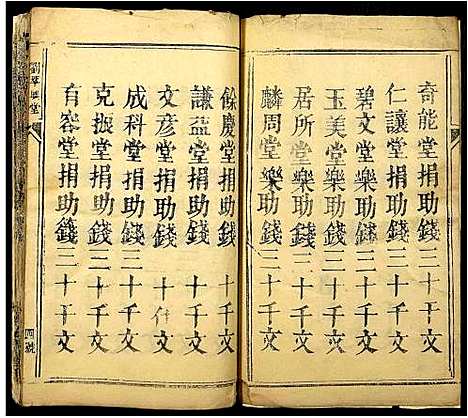 奇能堂捐助錢三十千文
仁讓堂捐助錢三十千文
碧文堂樂助錢三十千文
玉美堂樂助錢三十千文
居所堂樂助錢三十千文
麟周堂樂助錢三十千文
餘慶堂捐助錢三十千文
謙益堂捐助錢三十千文
文彥堂捐助錢三十千文
成科堂捐助錢三十千文
克振堂捐助錢三十千文
有容堂捐助錢三十千文
四號